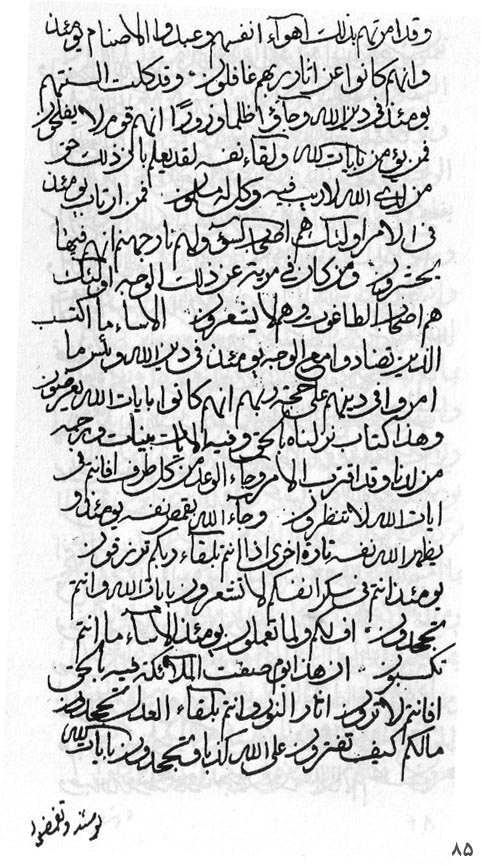 وقد امرتهم بذلك اهواء انفسهم وعبدوا الاصنام يومئذ
وانهم كانوا عن اثار ربهم غافلون وقد كلت السنتهم
يومئذ في دين الله وجاؤا ظلما وزورا انهم قوم لا يفلحون
فمن يؤمن بايات الله ولقاء نفسه لقد يعلم بان ذلك حق
من لدى الله لا ريب فيه وكل له فمن ارتاب يومئذ
في الامر اولئك هم اصحاب السوء ولهم نار جهنم انهم فيها
يحشرون ومن كان في مرية عن ذلك الوجه اولئك
هم اصحاب الطاغوت وهم لا يشعرون الا ساء ما اكتسب
الذين يضادوا مع الوجه يومئذ في دين الله وبئس ما
امروا في دينهم على حجة ربهم انهم كانوا بايات الله يعرضون
وهذا كتاب نزلناه بالحق وفيه الايات بينات ثم رحمة
من لدنا وقد اقترب الامر وجاء الوعد من كل طرف افانتم في
ايات الله لا تنظرون وجاء الله بقمص نفسه يومئذ و
يظهر الله نفسه تارة اخرى اذا انتم بلقاء ربكم ترزقون
يومئذ انتم في سكر انفسكم لا تشعرون بايات الله وانتم
تجحدون اف لكم ولما تعملون يومئذ الا ساء ما انتم
تكسبون ان هذا يوم صفت الملائكة فيه بالحق
افانتم لا ترون اثار النور وانتم بلقاء العدل تجحدون
مالكم كيف تفترون على الله كذبا وتجحدون بايات الله
يومئذ
٨٥